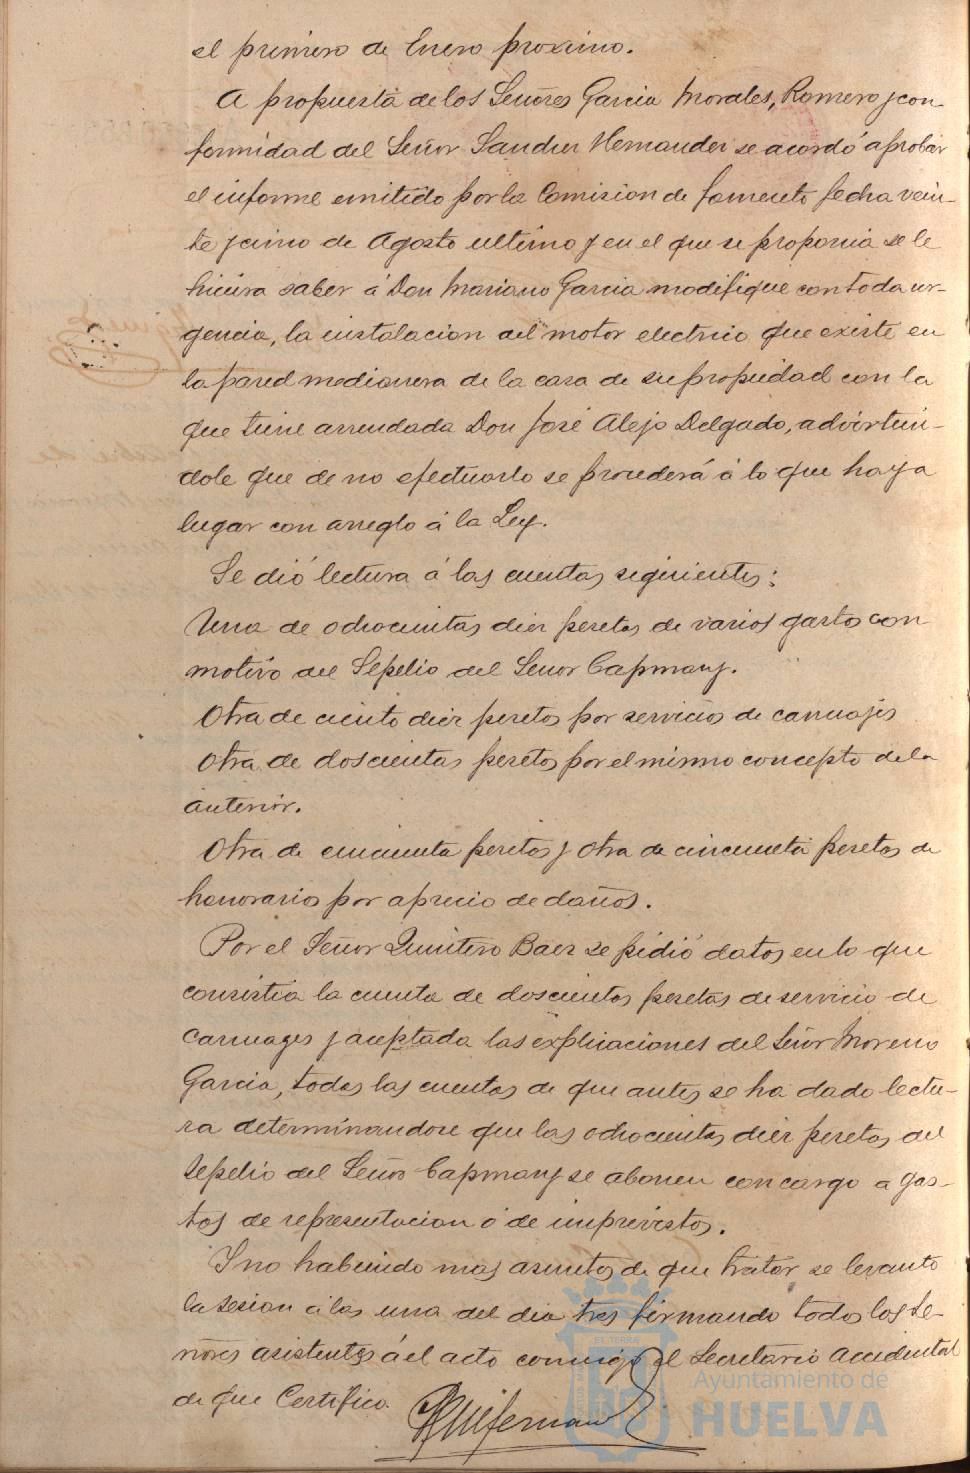 el primero de Enero proximo.
A propuesta de los Señores Garcia Morales, Romero y con-
formidad del Señor Sanchez Hernandez se acordó aprobar
el informe emitido por la Comision de fomento fecha vein-
te y cinco de Agosto ultimo y en el que se proponia se le
hiciera saber á Don Mariano Garcia modifique con toda ur-
gencia, la instalacion del motor electrico que existe en
la pared medianera de la casa de su propiedad con la
que tiene arrendada Don José Alejo Delgado, advirtien-
dole que de no efectuarlo se procederá á lo que haya
lugar con arreglo á la Ley.
Se dió lectura á las cuentas siguientes:
Una de ochocientas diez pesetas de varios gastos con
motivo del Sepelio del Señor Capmany.
Otra de ciento diez pesetas por servicios de carruajes
Otra de doscientas pesetas por el mismo concepto de la
anterior.
Otra de cincuenta pesetas y otra de cincuenta pesetas de
honorarios por aprecio de daños.
Por el Señor Quintero Baez se pidió datos en lo que
consistia la cuenta de doscientas pesetas de servicio de
carruages y aceptada las explicaciones del Señor Moreno
Garcia, todas las cuentas de que antes se ha dado lectu-
ra determinandose que las ochocientas diez pesetas del
sepelio del Señor Capmany se abonen con cargo a gas-
tos de representacion ó de imprevistos.
Y no habiendo mas asuntos de que tratar se levanto
la sesion á las una del dia tres firmando todos los Se-
ñores asistentes á el acto conmigo el Secretario Accidental
de que Certifico.
Ayuntamiento de
HUELVA